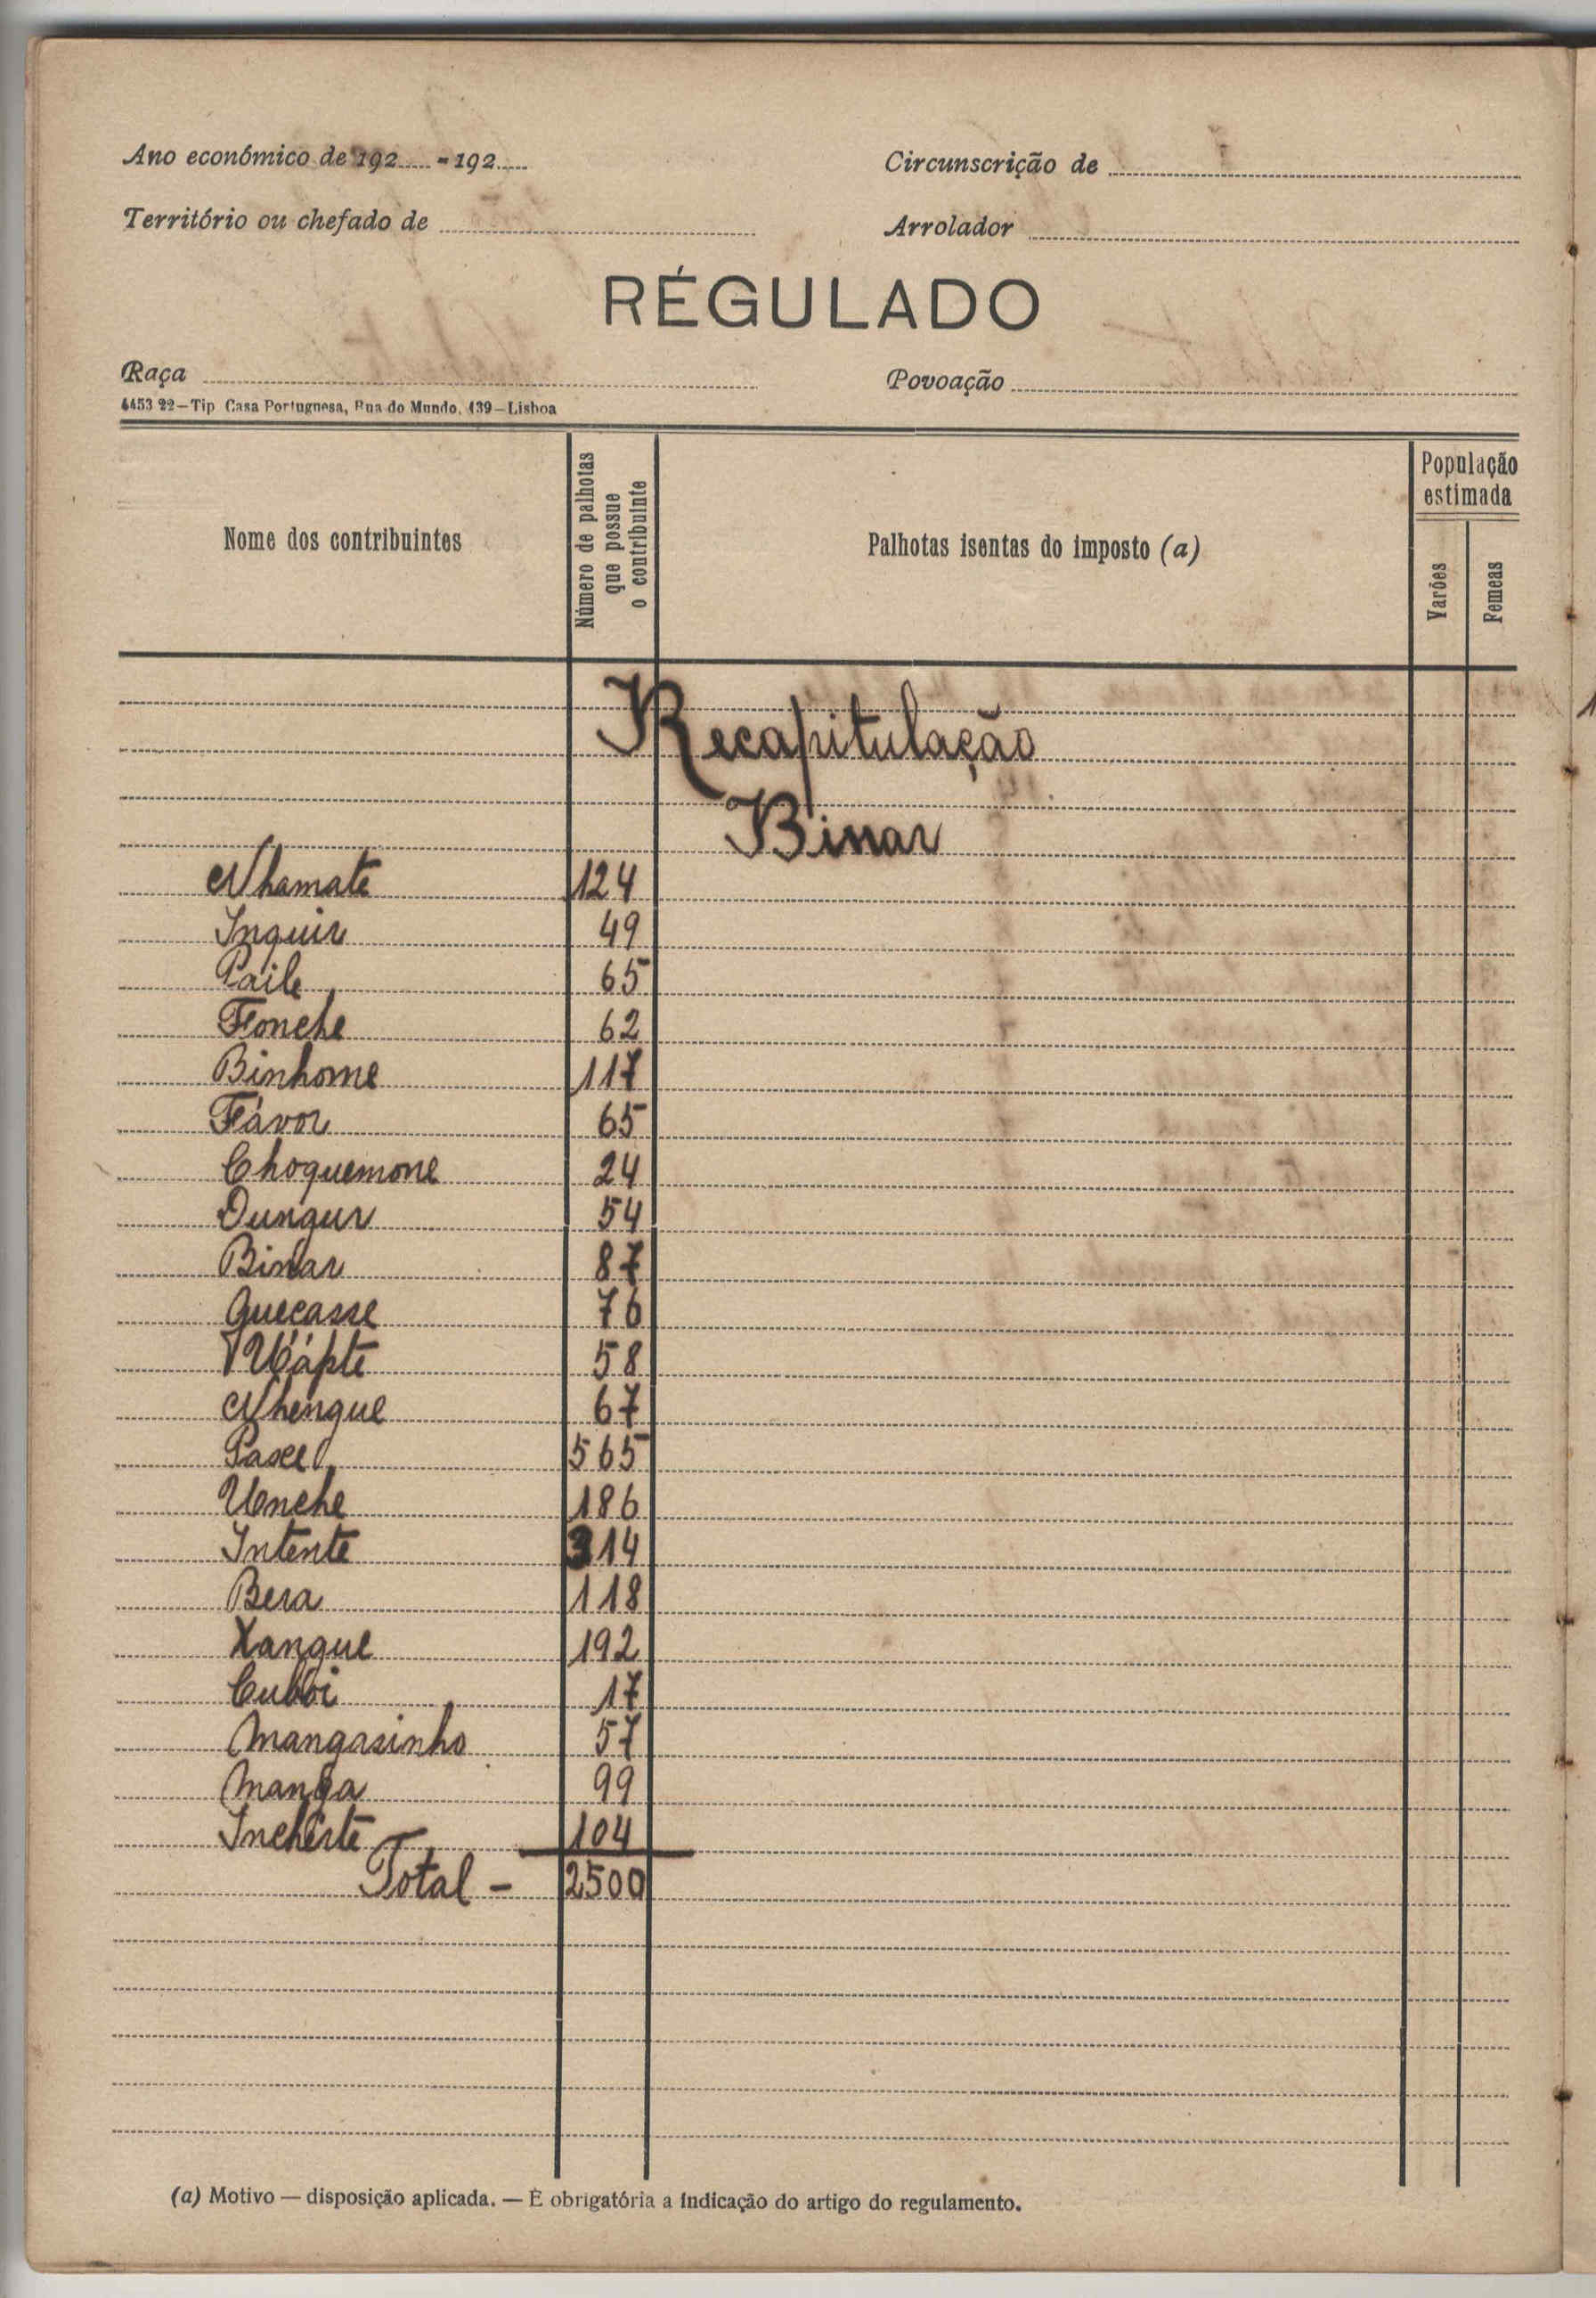 Ano económico de 192..... - 192.....
Circunscrição de
Território ou chefado de
Arrolador
RÉGULADO
Raça
Povoação
4453 22—Tip Casa Portuguesa, Rua do Mundo, 139—Lisboa
Nome dos contribuintes
Número de palhotas
que possue
o contribuinte
Palhotas isentas do imposto (a)
População
estimada
Varões
Femeas
Recapitulação
Binar
Nhamate 124
Inquir 49
Paile 65
Fonche 62
Binhome 117
Fávor 65
Choquemone 24
Dungur 54
Binar 87
Quecasse 76
58
Nhengue 67
565
Unche 186
Intente 314
Bera 118
Xangue 192
Cubói 17
Mangasinho 57
Manga 99
Incherte 104
Total - 2500
(a) Motivo — disposição aplicada. — É obrigatória a indicação do artigo do regulamento.